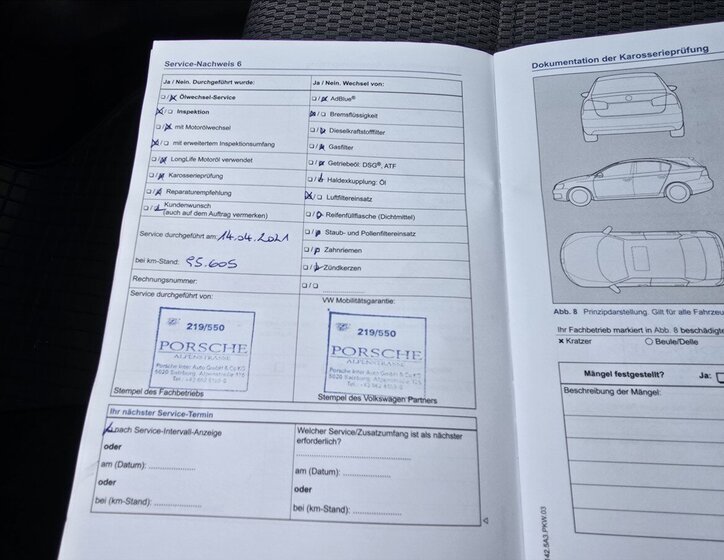 Service-Nachweis 6
Ja / Nein. Durchgeführt wurde:
Ölwechsel-Service
Inspektion
mit Motorölwechsel
mit erweitertem Inspektionsumfang
LongLife Motoröl verwendet
Karosserieprüfung
Reparaturempfehlung
Kundenwunsch
(auch auf dem Auftrag vermerken)
Service durchgeführt am: 14.04.2021
bei km-Stand: 95.605
Rechnungsnummer:
Service durchgeführt von:
219/550
PORSCHE
ALPENSTRASSE
Porsche Inter Auto GmbH & Co KG
5020 Salzburg, Alpenstraße
Stempel des Fachbetriebs
Ja / Nein. Wechsel von:
AdBlue®
Bremsflüssigkeit
Dieselkraftstofffilter
Gasfilter
Getriebeöl: DSG®, ATF
Haldexkupplung: Öl
Luftfiltereinsatz
Reifenfüllflasche (Dichtmittel)
Staub- und Pollenfiltereinsatz
Zahnriemen
Zündkerzen
VW Mobilitätsgarantie:
219/550
PORSCHE
ALPENSTRASSE
Porsche Inter Auto GmbH & Co KG
5020 Salzburg, Alpenstraße
Stempel des Volkswagen Partners
Ihr nächster Service-Termin
nach Service-Intervall-Anzeige
oder
am (Datum): ................
oder
bei (km-Stand): ................
Welcher Service/Zusatzumfang ist als nächster
erforderlich?
am (Datum): ................
oder
bei (km-Stand): ................
Dokumentation der Karosserieprüfung
Abb. 8 Prinzipdarstellung. Gilt für alle Fahrzeu
Ihr Fachbetrieb markiert in Abb. 8 beschädigte
x Kratzer
Beule/Delle
Mängel festgestellt?
Ja:
Beschreibung der Mängel:
142.5A3.PKW.03